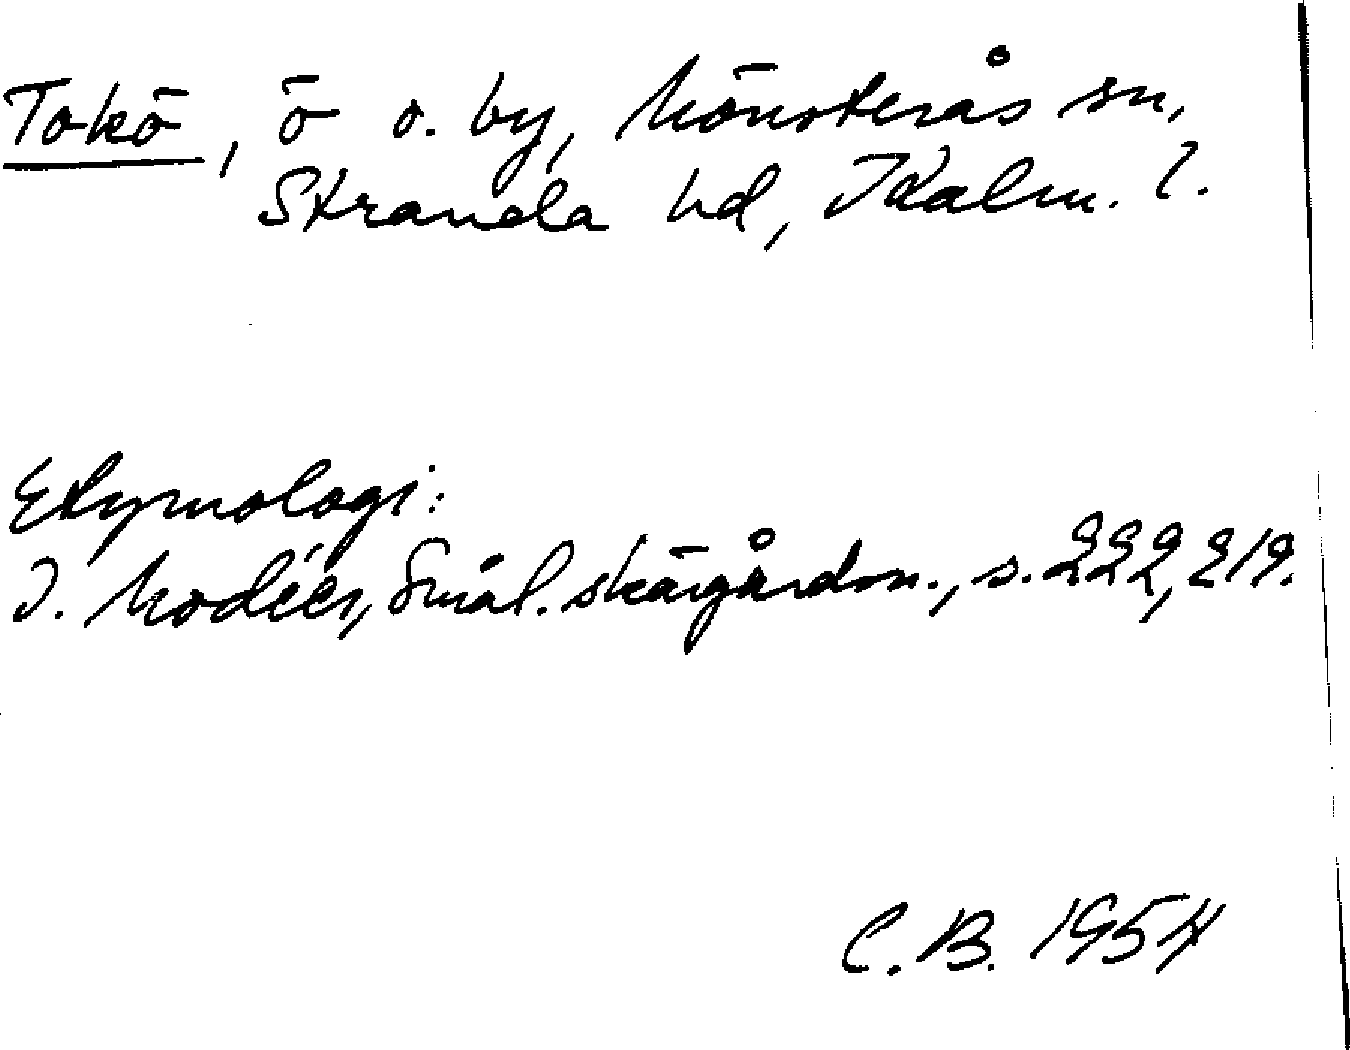 Tokö, ö o. by, Mönsterås sn,
Stranda hd, Kalm. l.
Etymologi:
I. Modéer, Smål. skärgårdsn., s. 222, 219.
C. B. 1954